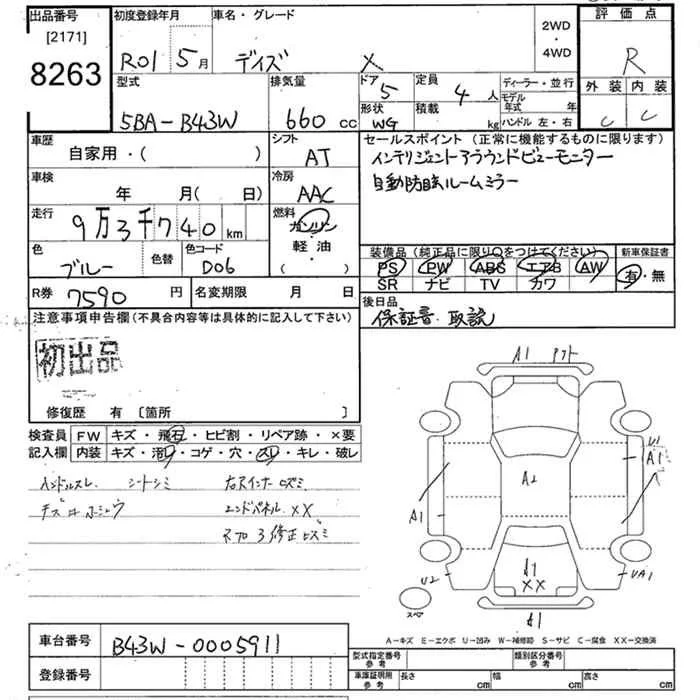 出品番号
[2171]
8263
初度登録年月
R01 5月
車名・グレード
デイズ X
2WD
・
4WD
評価点
R
外装 内装
C C
型式
5BA-B43W
排気量
660 cc
ドア
5
形状
WG
定員
4人
積載
kg
ディーラー・並行
モデル年式 年
ハンドル 左・右
車歴
自家用・( )
シフト
AT
セールスポイント (正常に機能するものに限ります)
インテリジェントアラウンドビューモニター
自動防眩ルームミラー
車検
年 月( 日)
冷房
AAC
走行
9万3千740 km
燃料
ガソリン
軽油
・( )
色
ブルー
色替
色コード
D06
装備品 (純正品に限り○をつけてください)
PS PW ABS エアB AW
SR ナビ TV カワ
新車保証書
有・無
R券 7590円
名変期限 月 日
後日品
保証書 取説
注意事項申告欄 (不具合内容等は具体的に記入して下さい)
初出品
修復歴 有 [箇所 ]
検査員
記入欄
FW キズ・飛石・ヒビ割・リペア跡・×要
内装 キズ・汚レ・コゲ・穴・スレ・キレ・破レ
ハンドルスレ シートシミ
エンドパネル XX
A1
A1
A2
A1
U1
A1
XX
U2
UA1
A1
スペア
A-キズ E-エクボ U-凹み W-補修跡 S-サビ C-腐食 XX-交換済
車台番号 B43W-0005911
登録番号
型式指定番号
参考
類別区分番号
参考
車庫証明用
参考
長さ cm 幅 cm 高さ cm